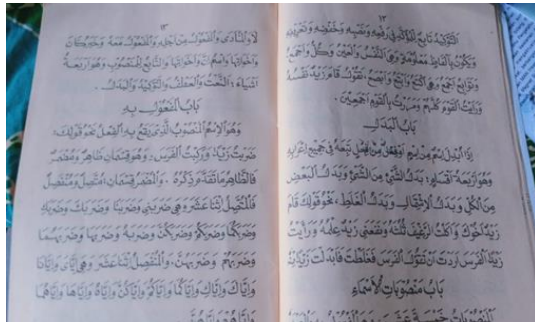 ١٣
التوكيد تابع للمؤكد في رفعه ونصبه وخفضه وتعريفه
ويكون بألفاظ معلومة وهي النفس والعين وكل وأجمع
وتوابع أجمع وهي أكتع وأبتع وأبصع تقول قام زيد نفسه
ورأيت القوم كلهم ومررت بالقوم أجمعين.
باب البدل
إذا أبدل اسم من اسم أو فعل من فعل تبعه في جميع إعرابه
وهو أربعة أقسام: بدل الشيء من الشيء وبدل البعض
من الكل وبدل الاشتمال وبدل الغلط، نحو قولك قام
زيد أخوك وأكلت الرغيف ثلثه ونفعني زيد علمه ورأيت
زيدا الفرس أردت أن تقول الفرس فغلطت فأبدلت زيدا منه
باب منصوبات الأسماء
المنصوبات خمسة عشر وهي المفعول به
١٣
لا والمنادى والمفعول من أجله والمفعول معه وخبر كان
وأخواتها واسم إن وأخواتها والتابع للمنصوب وهو أربعة
أشياء: النعت والعطف والتوكيد والبدل.
باب المفعول به
وهو الاسم المنصوب الذي يقع به الفعل نحو قولك:
ضربت زيدا، وركبت الفرس. وهو قسمان ظاهر ومضمر
فالظاهر ما تقدم ذكره. والمضمر قسمان: متصل ومنفصل
فالمتصل اثنا عشر وهي ضربني وضربنا وضربك وضربك
وضربكما وضربكم وضربكن وضربه وضربها وضربهما
وضربهم وضربهن. والمنفصل اثنا عشر وهي إياي وإيانا
وإياك وإياك وإياكما وإياكم وإياكن وإياه وإياها وإياهما
وإياهم وإياهن